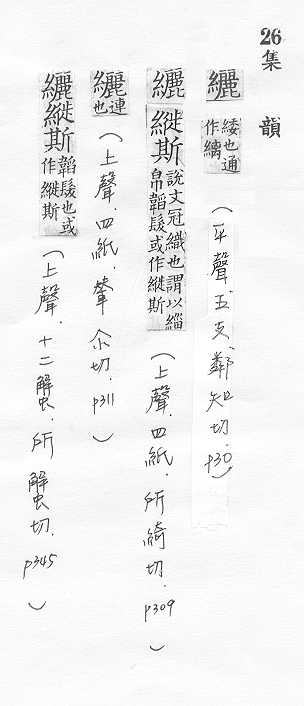 26 集韻
纚 緌也通作縭（平聲.五支.鄰知切.p30）
纚縰斯 說文冠織也謂以緇帛韜髮或作縰斯（上聲.四紙.所綺切.p309）
纚 連也（上聲.四紙.輦尒切.p311）
纚縰斯 韜髮也或作縰斯（上聲.十二蟹.所蟹切.p345）